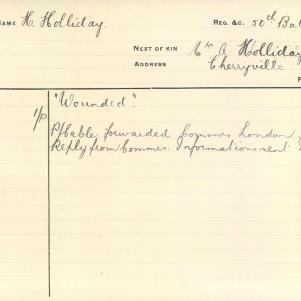 NAME H. Holliday REG. &C. 50th Bat
NEXT OF KIN Mrs A Holliday
ADDRESS Cherryville
"Wounded".
1/P
P/Cable forwarded Commrs London
Reply from Commrs. Information sent